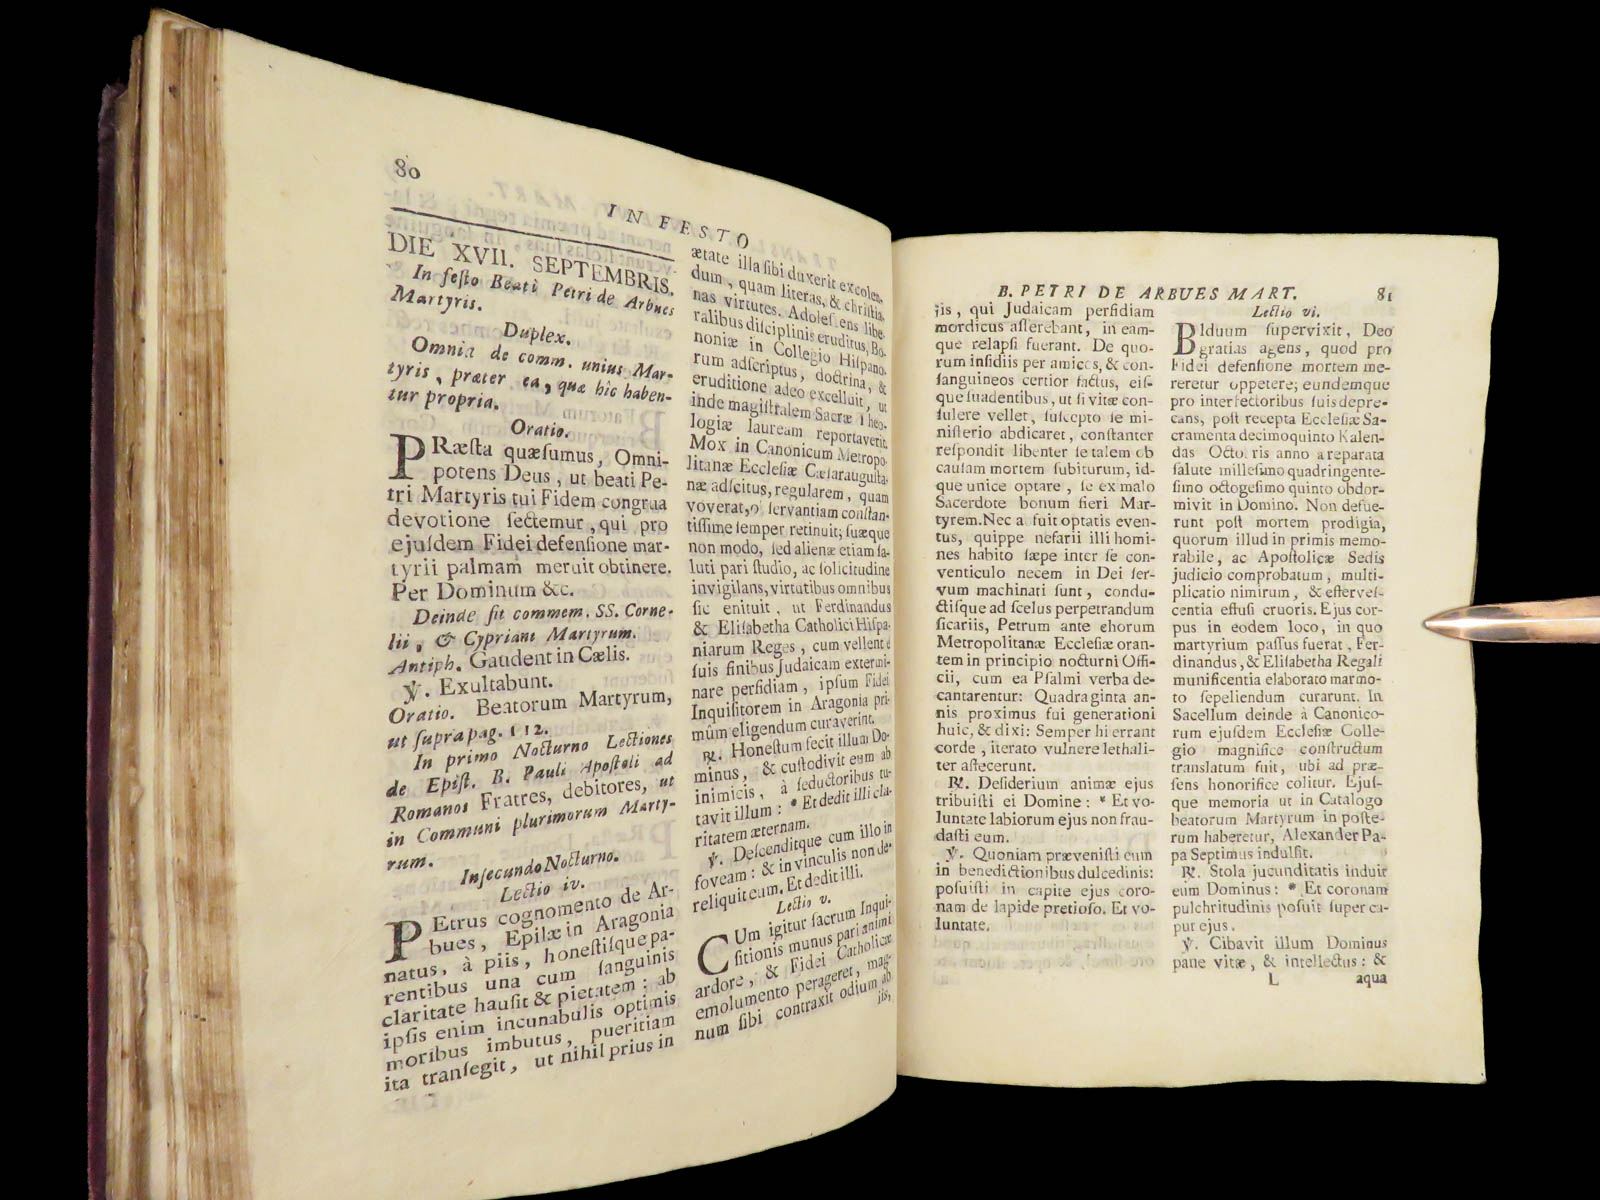 80
IN FESTO
DIE XVII. SEPTEMBRIS.
In feſto Beati Petri de Arbues
Martyris.
Duplex.
Omnia de comm. unius Mar-
tyris, præter ea, quæ hic haben-
tur propria.
Oratio.
PRæſta quæſumus, Omni-
potens Deus, ut beati Pe-
tri Martyris tui Fidem congrua
devotione ſectemur, qui pro
ejuſdem Fidei defenſione mar-
tyrii palmam meruit obtinere.
Per Dominum &c.
Deinde fit commem. SS. Corne-
lii, & Cypriani Martyrum.
Antiph. Gaudent in Cælis.
℣. Exultabunt.
Oratio. Beatorum Martyrum,
ut ſupra pag. 112.
In primo Nocturno Lectiones
de Epiſt. B. Pauli Apoſtoli ad
Romanos Fratres, debitores, ut
in Communi plurimorum Marty-
rum.
In ſecundo Nocturno.
Lectio iv.
PEtrus cognomento de Ar-
bues, Epilæ in Aragonia
natus, à piis, honeſtiſque pa-
rentibus una cum ſanguinis
claritate hauſit & pietatem: ab
ipſis enim incunabulis optimis
moribus imbutus, pueritiam
ita tranſegit, ut nihil prius in
ætate illa ſibi duxerit excolen-
dum, quam literas, & chriſtia-
nas virtutes. Adoleſcens libe-
ralibus diſciplinis eruditus, Bo-
noniæ in Collegio Hiſpano-
rum adſcriptus, doctrina, &
eruditione adeo excelluit, ut
inde magiſtralem Sacræ Theo-
logiæ lauream reportaverit.
Mox in Canonicum Metropo-
litanæ Eccleſiæ Cæſarauguſta-
næ adſcitus, regularem, quam
voverat, oſervantiam conſtan-
tiſſime ſemper retinuit; ſuæque
non modo, ſed alienæ etiam ſa-
luti pari ſtudio, ac ſolicitudine
invigilans, virtutibus omnibus
ſic enituit, ut Ferdinandus
& Eliſabetha Catholici Hiſpa-
niarum Reges, cum vellent è
ſuis finibus Judaicam extermi-
nare perfidiam, ipſum Fidei
Inquiſitorem in Aragonia pri-
mùm eligendum curaverint.
℟. Honeſtum fecit illum Do-
minus, & cuſtodivit eum ab
inimicis, à ſeductoribus tu-
tavit illum: * Et dedit illi cla-
ritatem æternam.
℣. Deſcenditque cum illo in
foveam: & in vinculis non de-
reliquit eum. Et dedit illi.
Lectio v.
CUm igitur ſacrum Inqui-
ſitionis munus pari animi
ardore, & Fidei Catholicæ
emolumento perageret, mag-
num ſibi contraxit odium ab
iis,
B. PETRI DE ARBUES MART.
81
iis, qui Judaicam perfidiam
mordicus aſſerebant, in eam-
que relapſi fuerant. De quo-
rum inſidiis per amicos, & con-
ſanguineos certior factus, eiſ-
que ſuadentibus, ut ſi vitæ con-
ſulere vellet, ſuſcepto ſe mi-
niſterio abdicaret, conſtanter
reſpondit libenter ſe talem ob
cauſam mortem ſubiturum, id-
que unice optare, ſe ex malo
Sacerdote bonum fieri Mar-
tyrem. Nec a fuit optatis even-
tus, quippe nefarii illi homi-
nes habito ſæpe inter ſe con-
venticulo necem in Dei ſer-
vum machinati ſunt, condu-
ctiſque ad ſcelus perpetrandum
ſicariis, Petrum ante chorum
Metropolitanæ Eccleſiæ oran-
tem in principio nocturni Offi-
cii, cum ea Pſalmi verba de-
cantarentur: Quadraginta an-
nis proximus fui generationi
huic, & dixi: Semper hi errant
corde, iterato vulnere lethali-
ter affecerunt.
℟. Deſiderium animæ ejus
tribuiſti ei Domine: * Et vo-
luntate labiorum ejus non frau-
daſti eum.
℣. Quoniam præveniſti eum
in benedictionibus dulcedinis:
poſuiſti in capite ejus coro-
nam de lapide pretioſo. Et vo-
luntate.
Lectio vi.
BIduum ſupervixit, Deo
gratias agens, quod pro
Fidei defenſione mortem me-
reretur oppetere; eundemque
pro interfectoribus ſuis depre-
cans, poſt recepta Eccleſiæ Sa-
cramenta decimoquinto Kalen-
das Octobris anno a reparata
ſalute milleſimo quadringente-
ſimo octogeſimo quinto obdor-
mivit in Domino. Non defue-
runt poſt mortem prodigia,
quorum illud in primis memo-
rabile, ac Apoſtolicæ Sedis
judicio comprobatum, multi-
plicatio nimirum, & efferveſ-
centia effuſi cruoris. Ejus cor-
pus in eodem loco, in quo
martyrium paſſus fuerat, Fer-
dinandus, & Eliſabetha Regali
munificentia elaborato marmo-
to ſepeliendum curarunt. In
Sacellum deinde à Canonico-
rum ejuſdem Eccleſiæ Colle-
gio magnifice conſtructum
translatum fuit, ubi ad præ-
ſens honorifice colitur. Ejuſ-
que memoria ut in Catalogo
beatorum Martyrum in poſte-
rum haberetur, Alexander Pa-
pa Septimus indulſit.
℟. Stola jucunditatis induit
eum Dominus: * Et coronam
pulchritudinis poſuit ſuper ca-
put ejus.
℣. Cibavit illum Dominus
pane vitæ, & intellectus: &
L aqua